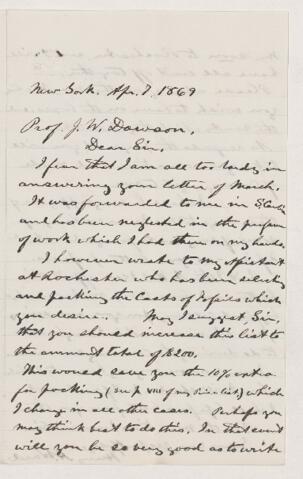 New York. Apr. 7. 1869
Prof. J. W. Dawson.
Dear Sir,
I fear that I am all too tardy in
answering your letter of March.
It was forwarded to me in St Louis
and has been neglected in the pressure
of work which I had then on my hands.
I however wrote to my Assistant
at Rochester who has been selecting
and packing the Casts of Fossils which
you desire. May I suggest, Sir,
that you should increase this list to
the ammount total of $200.
This would save you the 10% extra
for packing (see p. VIII of my Price list) which
I charge in all other cases. Perhaps you
may think best to do this. In that event
will you be so very good as to write